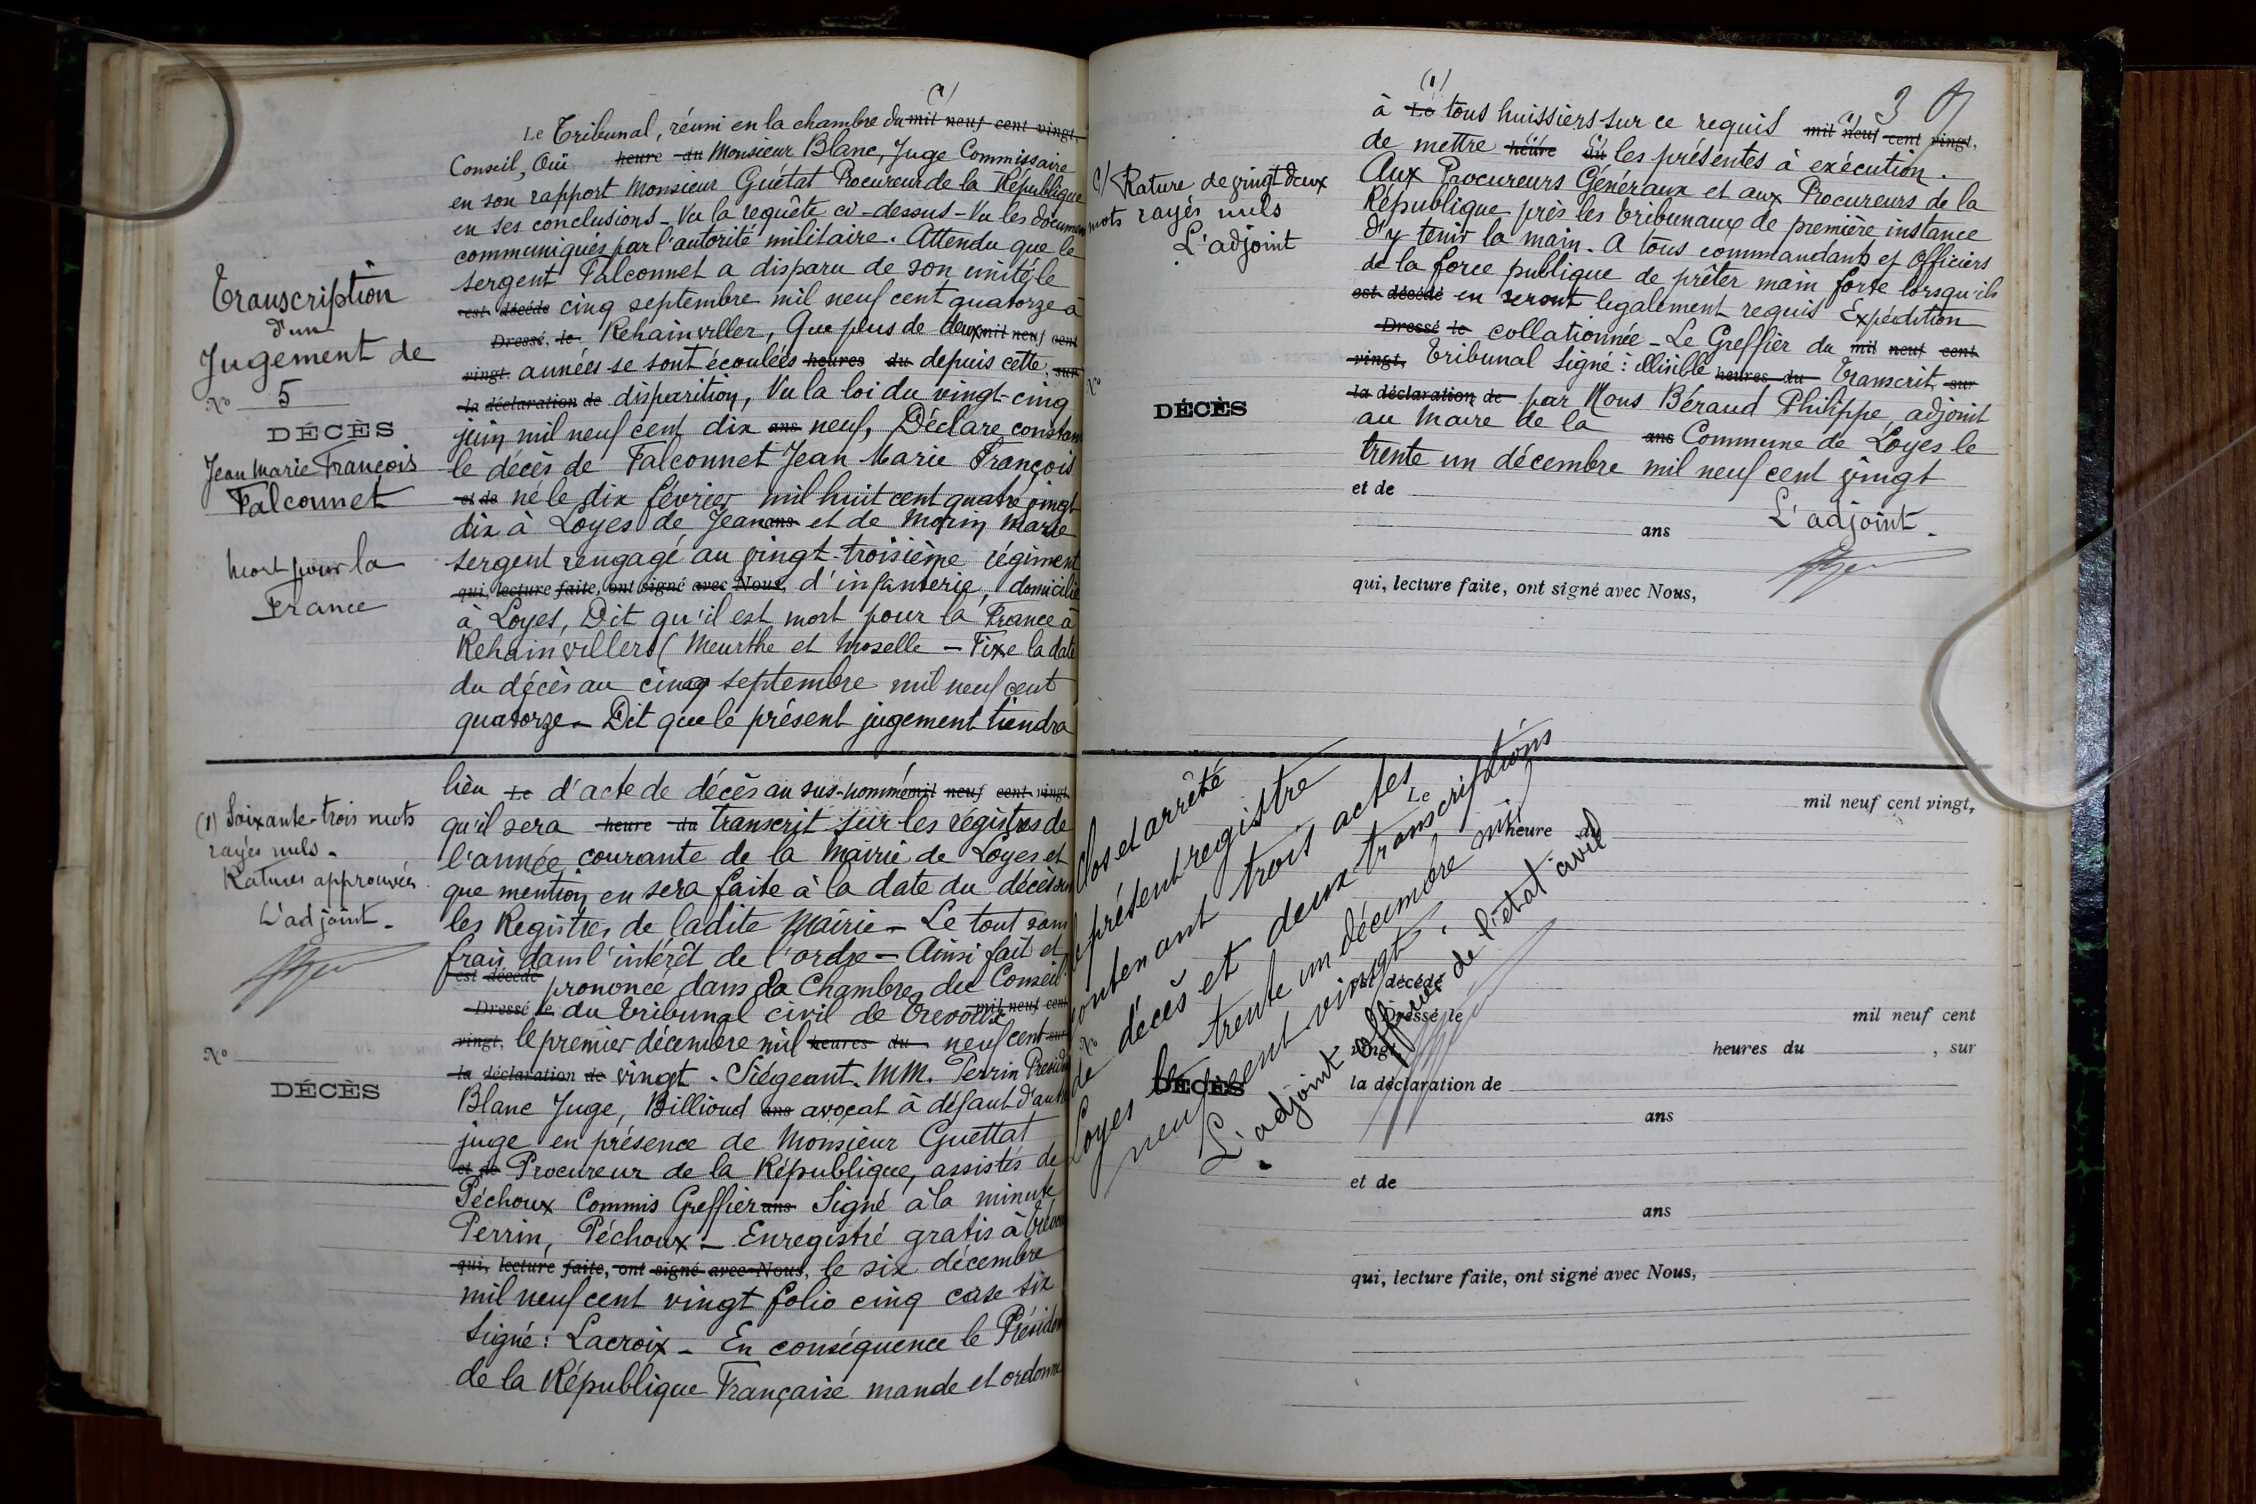 Transcription
d'un
Jugement de
N° 5
DÉCÈS
Jean Marie François
Falconnet
Mort pour la
France
(1)
Le Tribunal, réuni en la chambre du mil neuf cent vingt,
Conseil, Ouï heure du Monsieur Blanc, Juge Commissaire
en son rapport Monsieur Guétat Procureur de la République
en ses conclusions - Vu la requête ci-dessus - Vu les documen
communiqués par l'autorité militaire. Attendu que le
sergent Falconnet a disparu de son unité, le
est décédé cinq septembre mil neuf cent quatorze à
Dressé, le Rehainviller, Que plus de deux mil neuf cent
vingt années se sont écoulées heures du depuis cette, sur
la déclaration de disparition, Vu la loi du vingt-cinq
juin mil neuf cent dix ans neuf, Déclare constant
le décès de Falconnet Jean Marie François
et de né le dix février mil huit cent quatre vingt
dix à Loyes de Jean ans et de Morin Marie
sergent rengagé au vingt-troisième régiment
qui, lecture faite, ont signé avec Nous, d'infanterie, domicilié
à Loyes, Dit qu'il est mort pour la France à
Rehainviller (Meurthe et Moselle - Fixe la date
du décès au cinq septembre mil neuf cent
quatorze - Dit que le présent jugement tiendra
(1) Soixante-trois mots
rayés nuls -
Ratures approuvées
L'adjoint -
N°
DÉCÈS
lieu Le d'acte de décès au sus-nommé mil neuf cent vingt
qu'il sera heure du transcrit sur les registres de
l'année courante de la Mairie de Loyes et
que mention en sera faite à la date du décès sur
les Registres de ladite Mairie - Le tout sans
frais dans l'intérêt de l'ordre - Ainsi fait et
est décédé prononcé dans la Chambre du Conseil
Dressé le du Tribunal civil de Trévoux mil neuf cent
vingt, le premier décembre mil heures du neuf cent sur
la déclaration de vingt. Siégeant. MM. Perrin Présid
Blanc Juge, Billioud ans avocat à défaut d'autre
juge en présence de Monsieur Guettat
et de Procureur de la République, assistés de
Péchoux Commis Greffier ans Signé à la minute
Perrin, Péchoux - Enregistré gratis à Trévoux
qui, lecture faite, ont signé avec Nous, le six décembre
mil neuf cent vingt folio cinq case six
Signé: Lacroix - En conséquence le Présiden
de la République Française mande et ordonne
3
(1) Rature de vingt deux
mots rayés nuls
L'adjoint
N°
DÉCÈS
(1)
à Le tous huissiers sur ce requis mil neuf cent vingt,
de mettre heure du les présentes à exécution.
Aux Procureurs Généraux et aux Procureurs de la
République près les tribunaux de première instance
d'y tenir la main. A tous commandants et Officiers
de la force publique de prêter main forte lorsqu'ils
est décédé en seront legalement requis Expédition
Dressé le collationnée - Le Greffier du mil neuf cent
vingt, Tribunal Signé: illisible heures du Transcrit, sur
la déclaration de par Nous Béraud Philippe, adjoint
au Maire de la ans Commune de Loyes le
trente un décembre mil neuf cent vingt
et de
L'adjoint -
ans
qui, lecture faite, ont signé avec Nous,
Clos et arrêté
le présent registre
contenant trois actes
de décès et deux transcriptions
Loyes le trente un décembre mil
neuf cent vingt.
L'adjoint officier de l'état civil
N°
DÉCÈS
Le mil neuf cent vingt,
heure du
est décédé
Dressé le mil neuf cent
vingt, heures du , sur
la déclaration de
ans
et de
ans
qui, lecture faite, ont signé avec Nous,